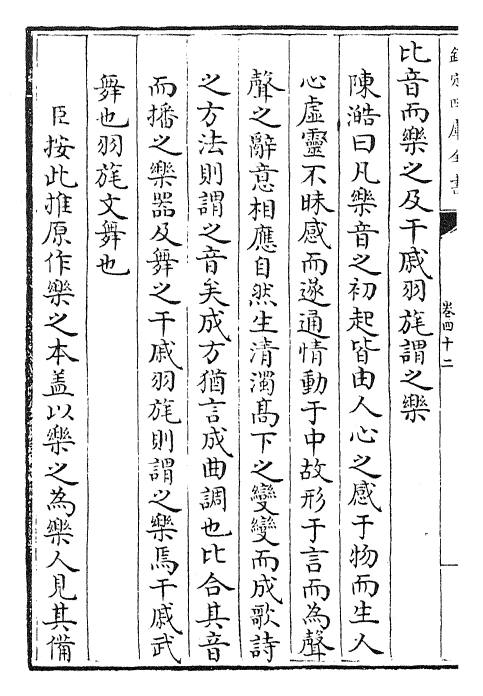 欽定四庫全書
卷四十二
比音而樂之及干戚羽旄謂之樂
陳澔曰凡樂音之初起皆由人心之感于物而生人
心虛靈不昧感而遂通情動于中故形于言而為聲
聲之辭意相應自然生清濁髙下之變變而成歌詩
之方法則謂之音矣成方猶言成曲調也比合其音
而播之樂器及舞之干戚羽旄則謂之樂焉干戚武
舞也羽旄文舞也
臣按此推原作樂之本盖以樂之為樂人見其備